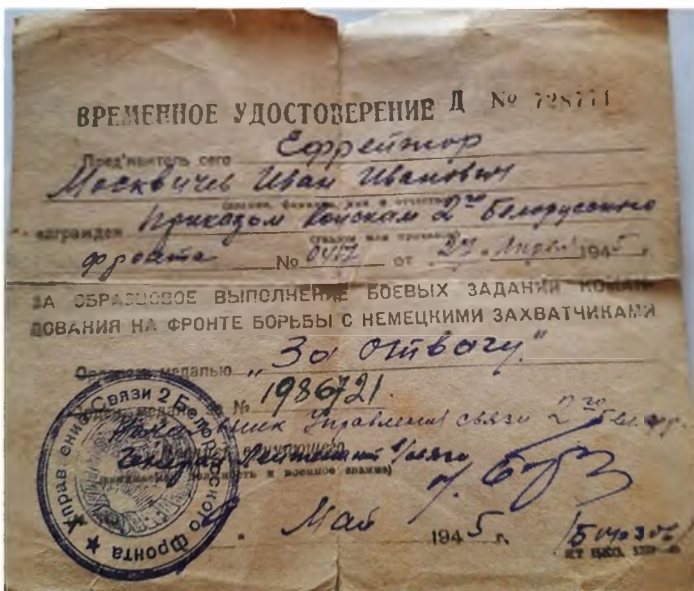 ВРЕМЕННОЕ УДОСТОВЕРЕНИЕ Д № 728771
Пред'явитель сего Ефрейтор
Москвичев Иван Иванович
(звание, фамилия, имя и отчество)
награжден Приказом Войскам 2го Белорусского
(указом или приказом)
фронта № 0417 от 27 Апреля 1945 г.
ЗА ОБРАЗЦОВОЕ ВЫПОЛНЕНИЕ БОЕВЫХ ЗАДАНИЙ КОМАН-
ДОВАНИЯ НА ФРОНТЕ БОРЬБЫ С НЕМЕЦКИМИ ЗАХВАТЧИКАМИ
медалью „За Отвагу"
№ 1986721.
Начальник Управления связи 2го Белор.
Генерал Лейтенант
должность и военное звание)
Май 1945 г.
Управление Связи 2 Белорусского Фронта